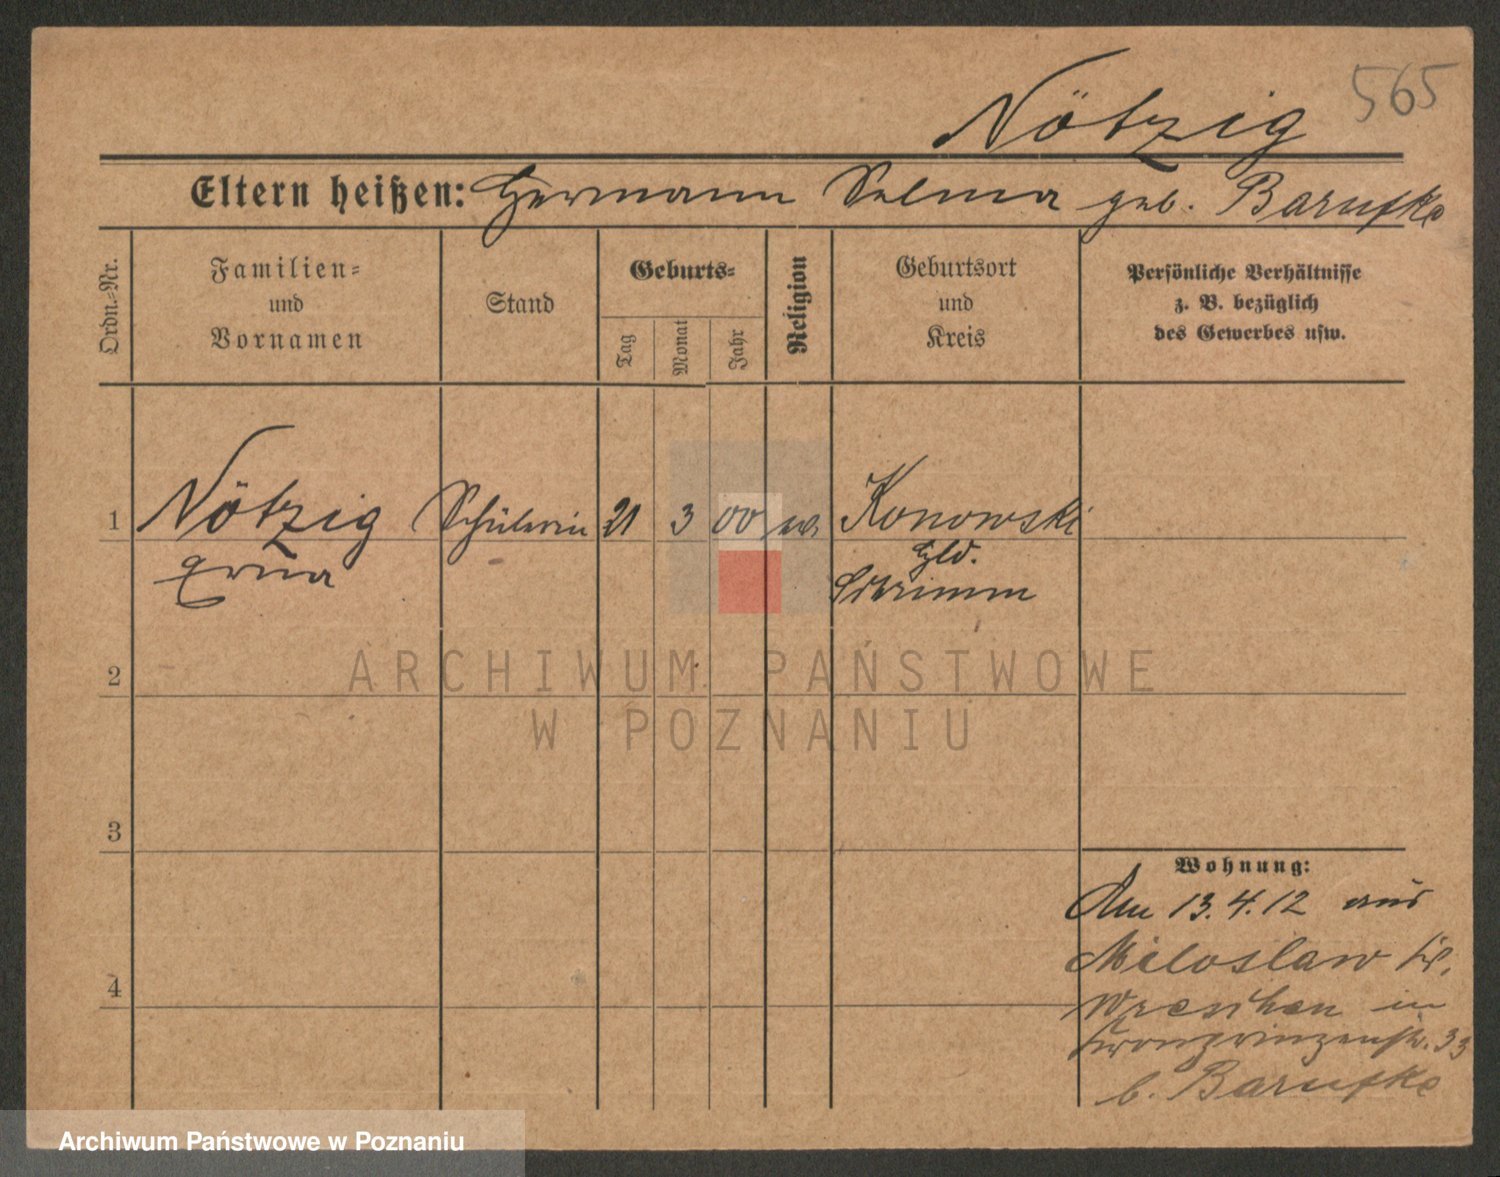 565
Nötzig
Eltern heißen: Hermann Selma geb. Barufke
Ordn.-Nr.
Familien-
und
Vornamen
Stand
Geburts-
Tag
Monat
Jahr
Religion
Geburtsort
und
Kreis
Persönliche Verhältnisse
z. B. bezüglich
des Gewerbes usw.
1 Nötzig Schülerin 21 3 00 ev. Konowski
Erna
Schrimm
2
3
4
Wohnung:
Am 13.4.12 aus
Miloslaw Kr.
Wreschen in
Kronprinzenstr. 33
b. Barufke
ARCHIWUM PAŃSTWOWE
W POZNANIU
Archiwum Państwowe w Poznaniu